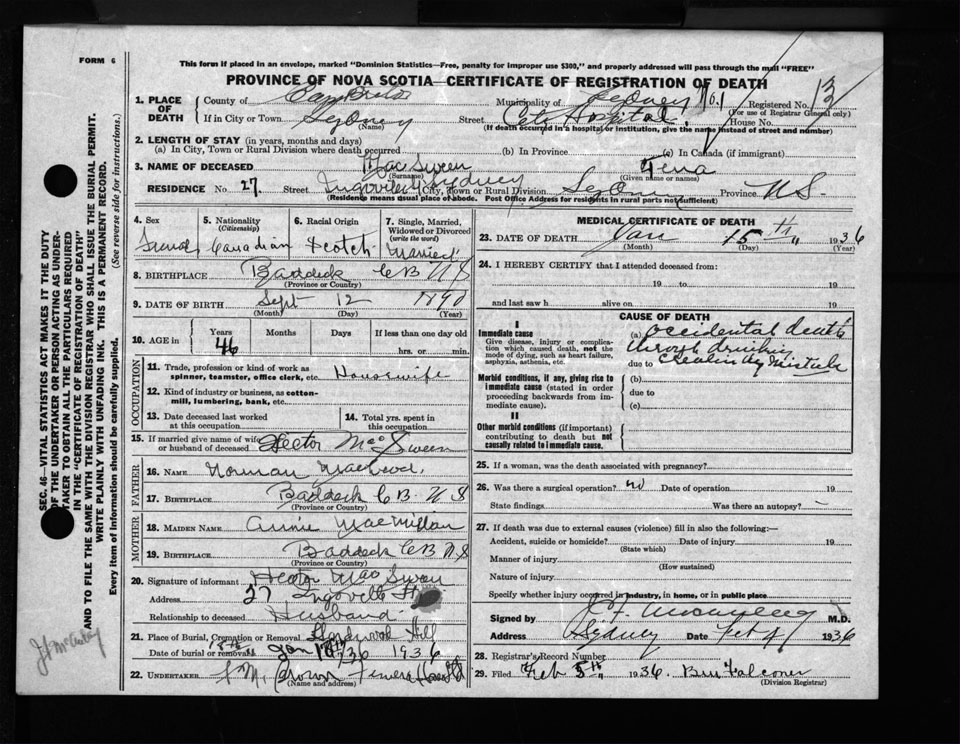 FORM 6
This form if placed in an envelope, marked "Dominion Statistics—Free, penalty for improper use $300," and properly addressed will pass through the mail "FREE"
PROVINCE OF NOVA SCOTIA—CERTIFICATE OF REGISTRATION OF DEATH
1. PLACE OF DEATH County of Cape Breton Municipality of Sydney No. 1 Registered No. 13
(For use of Registrar General only)
If in City or Town Sydney Street City Hospital House No.
(Name) (If death occurred in a hospital or institution, give the name instead of street and number)
2. LENGTH OF STAY (in years, months and days)
(a) In City, Town or Rural Division where death occurred (b) In Province (c) In Canada (if immigrant)
3. NAME OF DECEASED MacSween Tena
(Surname) (Given name or names)
RESIDENCE No. 27 Street Sydney (City, Town or Rural Division Sydney Province N S
(Residence means usual place of abode. Post Office Address for residents in rural parts not sufficient)
4. Sex 5. Nationality (Citizenship) 6. Racial Origin 7. Single, Married, Widowed or Divorced (write the word)
Canadian Scotch Married
8. BIRTHPLACE Baddeck C B N S
(Province or Country)
9. DATE OF BIRTH Sept 12 1890
(Month) (Day) (Year)
10. AGE in Years Months Days If less than one day old
46 hrs. or min.
OCCUPATION
11. Trade, profession or kind of work as spinner, teamster, office clerk, etc. Housewife
12. Kind of industry or business, as cotton-mill, lumbering, bank, etc.
13. Date deceased last worked at this occupation 14. Total yrs. spent in this occupation
15. If married give name of wife or husband of deceased Hector MacSween
FATHER
16. NAME Norman
17. BIRTHPLACE Baddeck C B N S
(Province or Country)
MOTHER
18. MAIDEN NAME Annie MacMillan
19. BIRTHPLACE Baddeck C B N S
(Province or Country)
20. Signature of informant Hector MacSween
Address 27 St
Relationship to deceased Husband
21. Place of Burial, Cremation or Removal Hardwood Hill
Date of burial or removal Jan 18th 1936
22. UNDERTAKER Brown Funeral
(Name and address)
MEDICAL CERTIFICATE OF DEATH
23. DATE OF DEATH Jan 15th 1936
(Month) (Day) (Year)
24. I HEREBY CERTIFY that I attended deceased from:
19 to 19
and last saw h alive on 19
CAUSE OF DEATH
I
Immediate cause
Give disease, injury or complication which caused death, not the mode of dying, such as heart failure, asphyxia, asthenia, etc.
(a) accidental death
through drinking
due to by mistake
Morbid conditions, if any, giving rise to immediate cause (stated in order proceeding backwards from immediate cause).
(b)
due to
(c)
II
Other morbid conditions (if important) contributing to death but not causally related to immediate cause.
25. If a woman, was the death associated with pregnancy?
26. Was there a surgical operation? no Date of operation 19
State findings Was there an autopsy? –
27. If death was due to external causes (violence) fill in also the following:—
Accident, suicide or homicide? Date of injury 19
(State which)
Manner of injury
(How sustained)
Nature of injury
Specify whether injury occurred in industry, in home, or in public place
Signed by M.D.
Address Sydney Date Feb 4 1936
28. Registrar's Record Number
29. Filed Feb 5th 1936 Falconer
(Division Registrar)
SEC. 46—VITAL STATISTICS ACT MAKES IT THE DUTY
OF THE UNDERTAKER OR PERSON ACTING AS UNDERTAKER TO OBTAIN ALL THE PARTICULARS REQUIRED
IN THE "CERTIFICATE OF REGISTRATION OF DEATH"
AND TO FILE THE SAME WITH THE DIVISION REGISTRAR WHO SHALL ISSUE THE BURIAL PERMIT.
WRITE PLAINLY WITH UNFADING INK. THIS IS A PERMANENT RECORD.
Every item of Information should be carefully supplied. (See reverse side for instructions.)